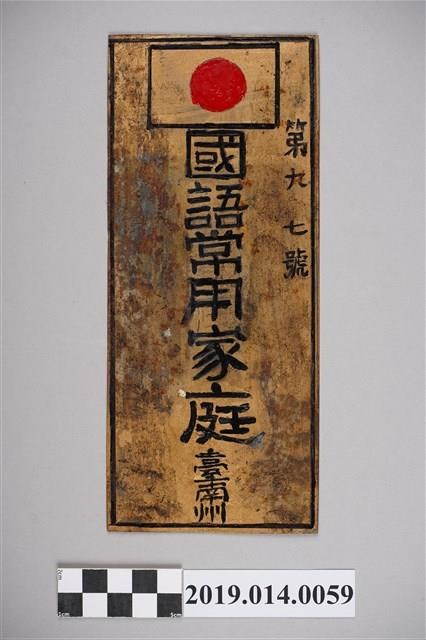 第九七號
國語常用家庭
臺南州
2cm
1cm
5cm
2019.014.0059